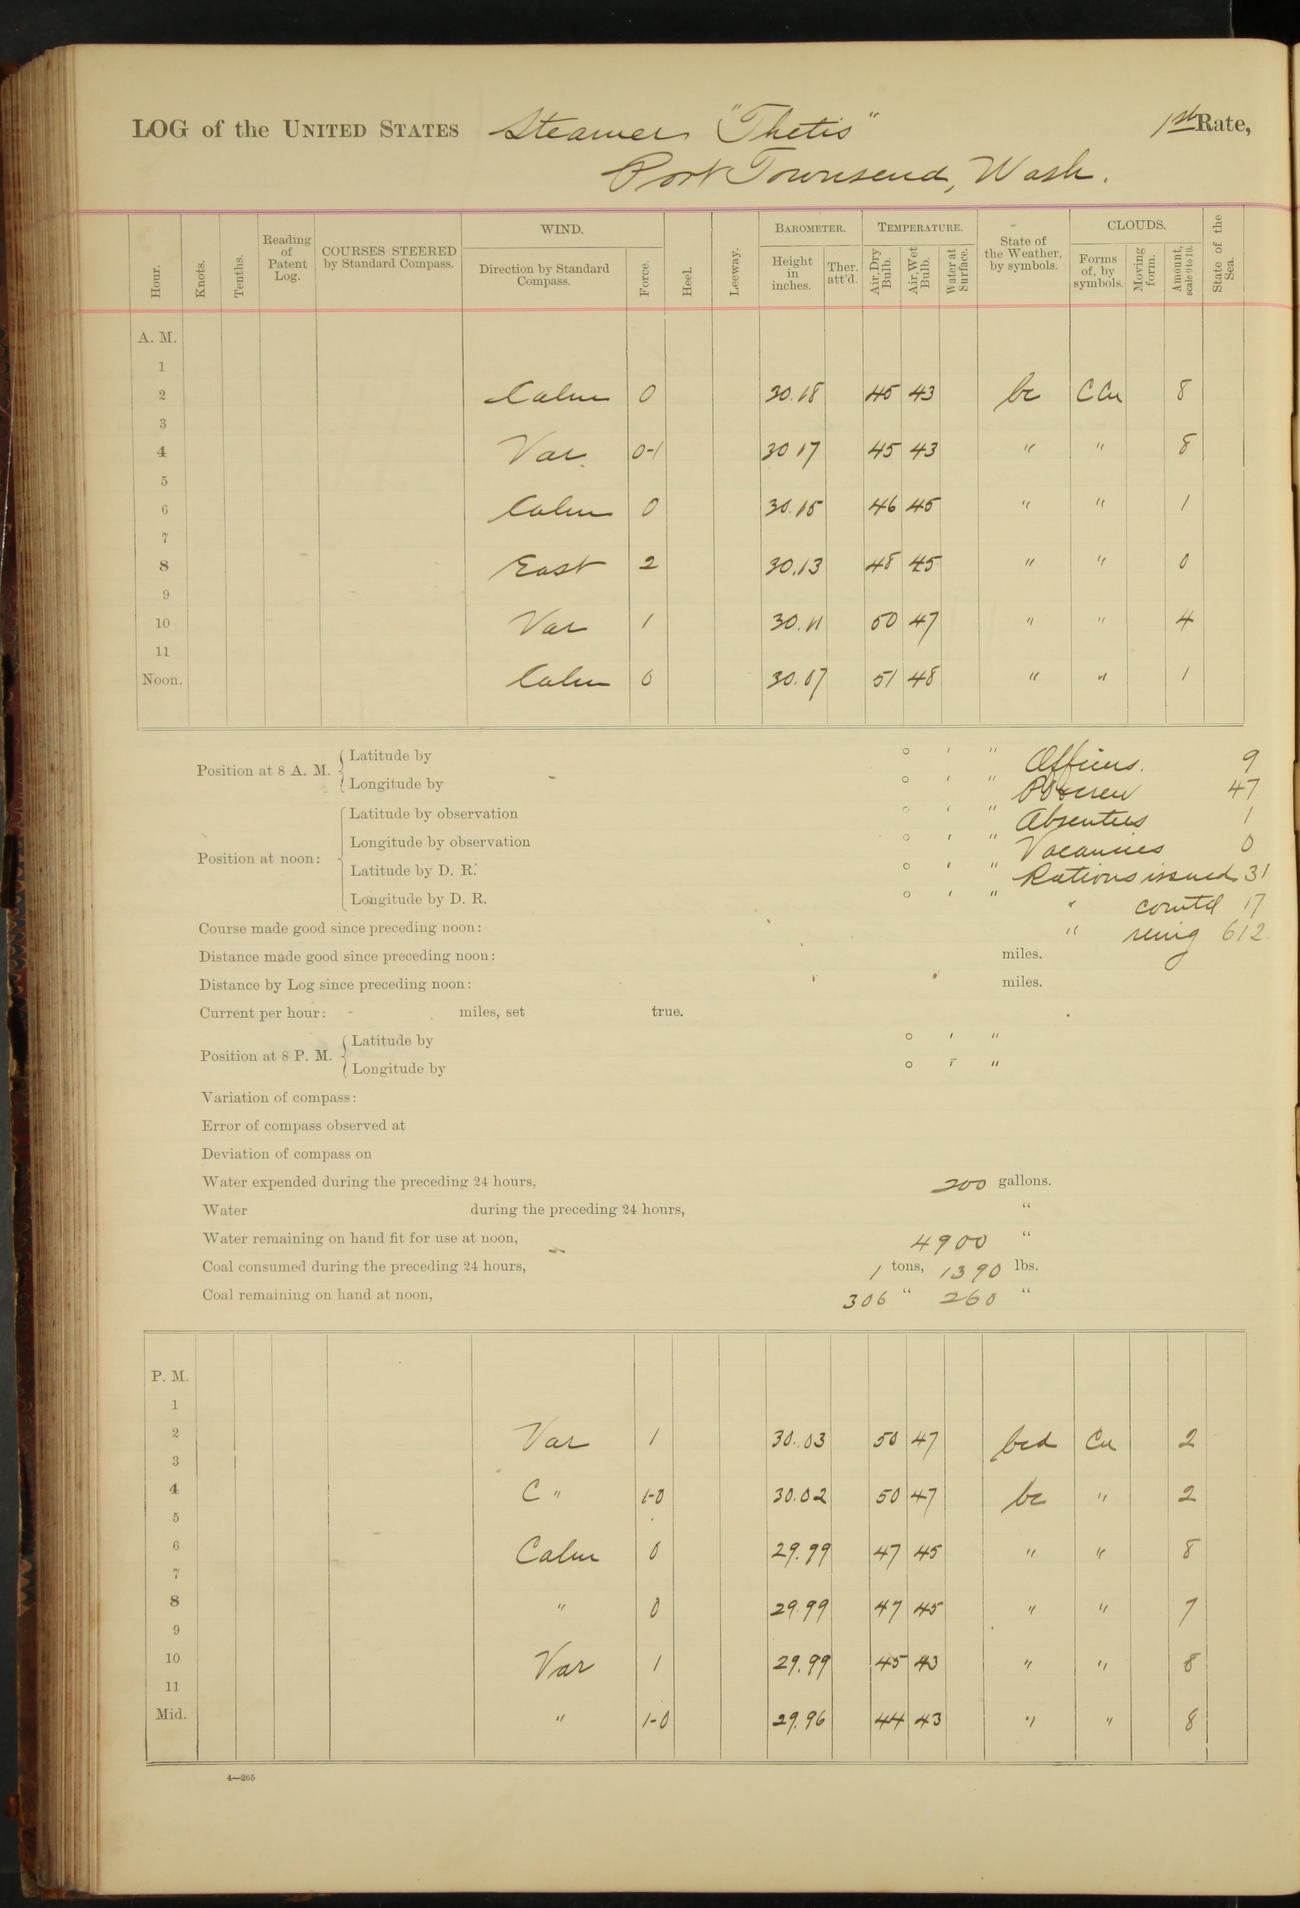 LOG of the UNITED STATES Steamer "Thetis" 1st Rate,
Port Townsend, Wash.
Hour. Knots. Tenths. Reading of Patent Log. COURSES STEERED by Standard Compass. WIND. Direction by Standard Compass. Force. Heel. Leeway. BAROMETER. Height in inches. Ther. att'd. TEMPERATURE. Air, Dry Bulb. Air, Wet Bulb. Water at Surface. State of the Weather, by symbols. CLOUDS. Forms of, by symbols. Moving form. Amount, scale 0 to 10. State of the Sea.
A. M.
1
2 Calm 0 30.18 45 43 bc C Cu 8
3
4 Var 0-1 30 17 45 43 " " 8
5
6 Calm 0 30.15 46 45 " " 1
7
8 East 2 30.13 48 45 " " 0
9
10 Var 1 30.11 50 47 " " 4
11
Noon. Calm 0 30.07 51 48 " " 1
Position at 8 A. M. Latitude by ° ' " Officers. 9
Longitude by ° ' " PO & crew 47
Position at noon: Latitude by observation ° ' " Absentees 1
Longitude by observation ° ' " Vacancies 0
Latitude by D. R. ° ' " Rations issued 31
Longitude by D. R. ° ' " " comtd 17
Course made good since preceding noon: " remg 612
Distance made good since preceding noon: miles.
Distance by Log since preceding noon: miles.
Current per hour: miles, set true.
Position at 8 P. M. Latitude by ° ' "
Longitude by ° ' "
Variation of compass:
Error of compass observed at
Deviation of compass on
Water expended during the preceding 24 hours, 200 gallons.
Water during the preceding 24 hours, "
Water remaining on hand fit for use at noon, 4900 "
Coal consumed during the preceding 24 hours, 1 tons, 1390 lbs.
Coal remaining on hand at noon, 306 " 260 "
P. M.
1
2 Var 1 30.03 50 47 bcd Cu 2
3
4 C " 1-0 30.02 50 47 bc " 2
5
6 Calm 0 29.99 47 45 " " 8
7
8 " 0 29.99 47 45 " " 7
9
10 Var 1 29.99 45 43 " " 8
11
Mid. " 1-0 29.96 44 43 " " 8
4—265